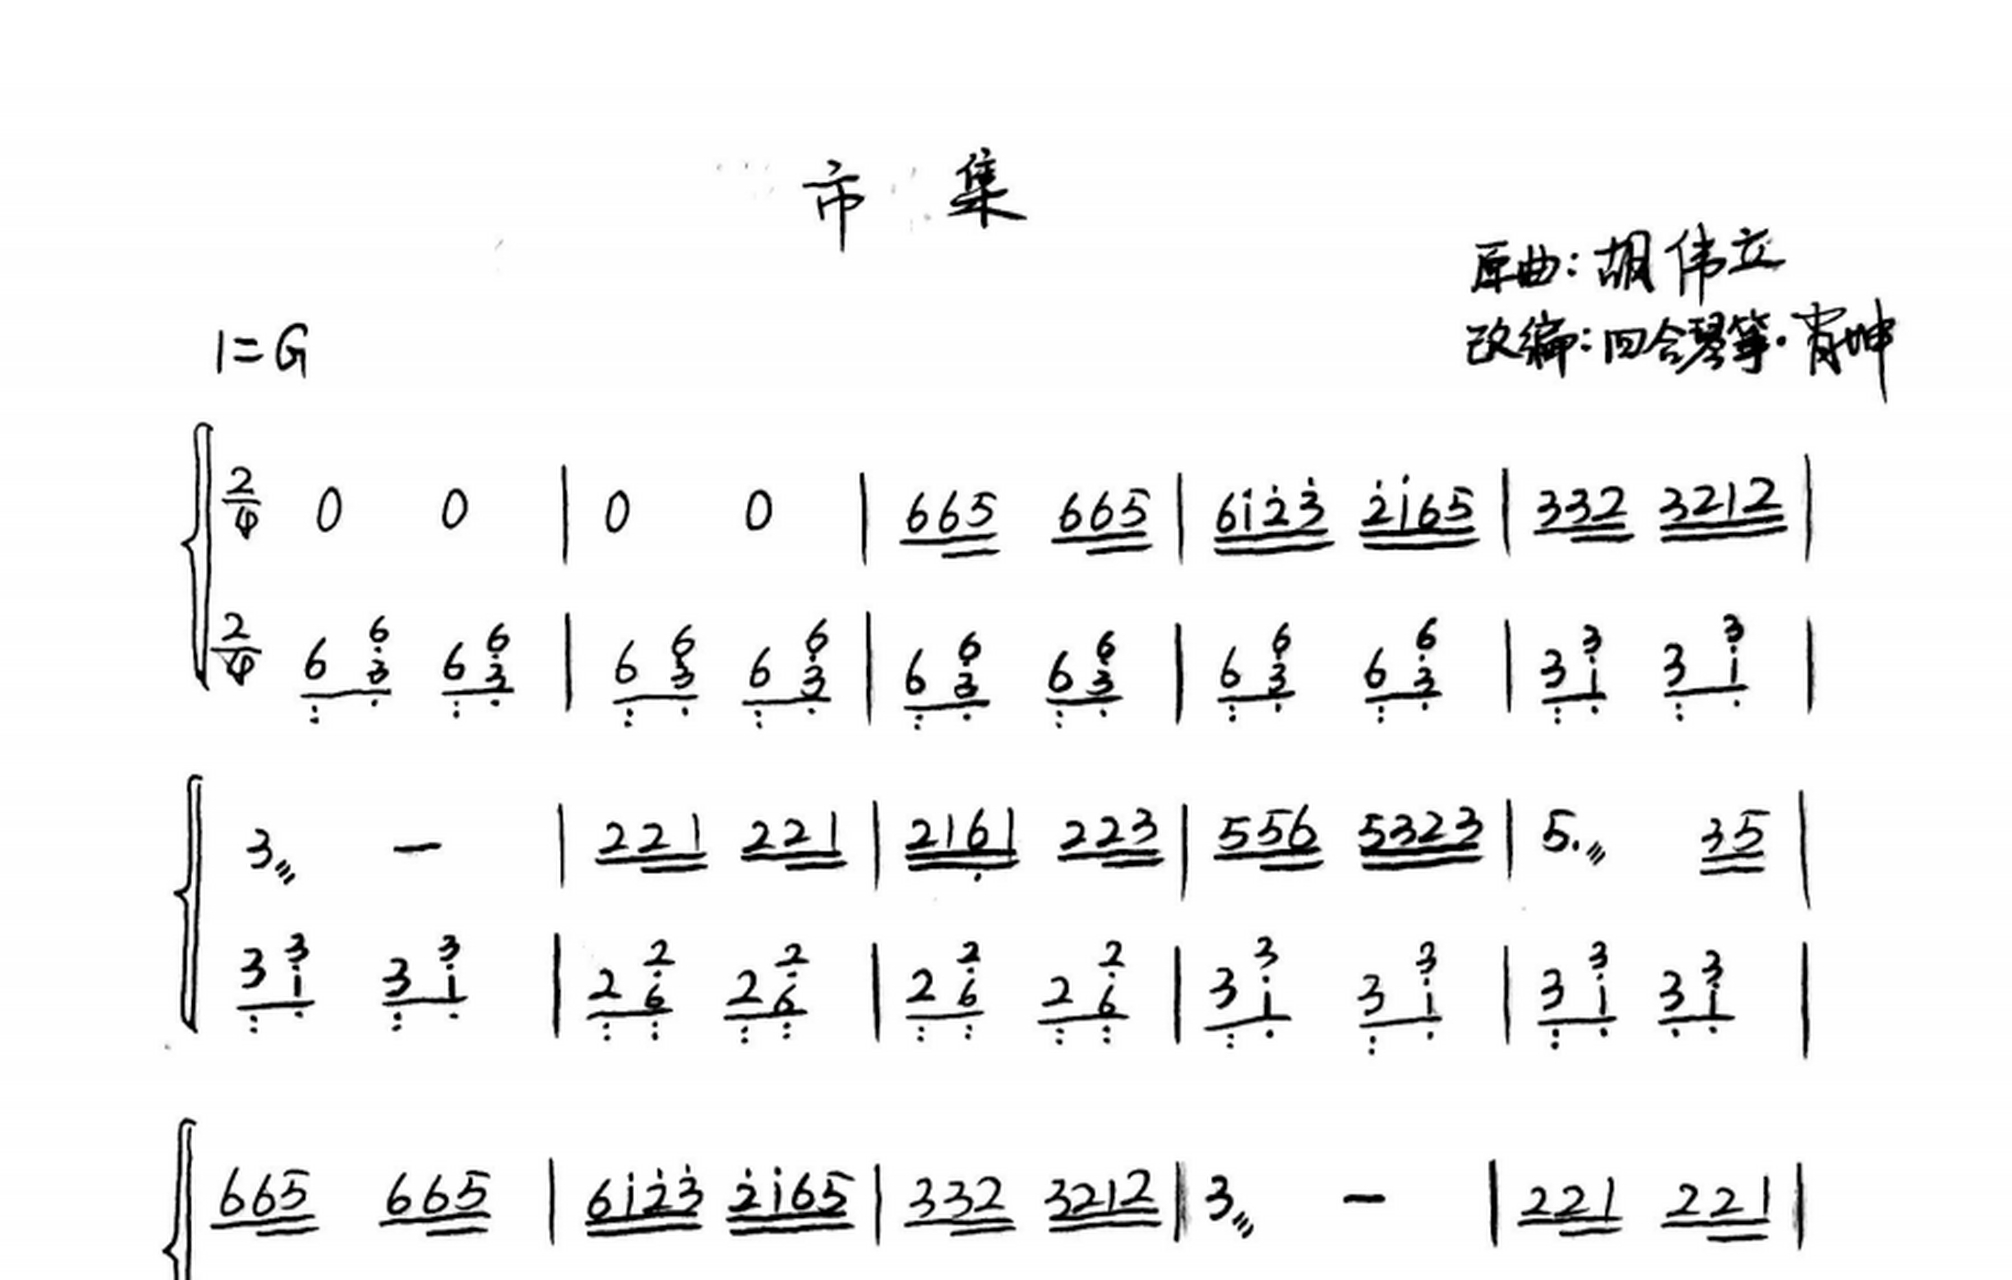 市 集
原曲:胡伟立
改编:四合琴筝·肖坤
1=G
2/4 0 0 | 0 0 | 665 665 | 61̇2̇3̇ 2̇1̇65 | 332 3212 |
2/4 6 6 3 6 6 3 | 6 6 3 6 6 3 | 6 6 3 6 6 3 | 6 6 3 6 6 3 | 3 3 1 3 3 1 |
3〃 — | 221 221 | 216̣1 223 | 556 5323 | 5.〃 35 |
3 3 1 3 3 1 | 2 2 6 2 2 6 | 2 2 6 2 2 6 | 3 3 1 3 3 1 | 3 3 1 3 3 1 |
665 665 | 61̇2̇3̇ 2̇1̇65 | 332 3212 | 3〃 — | 221 221 |